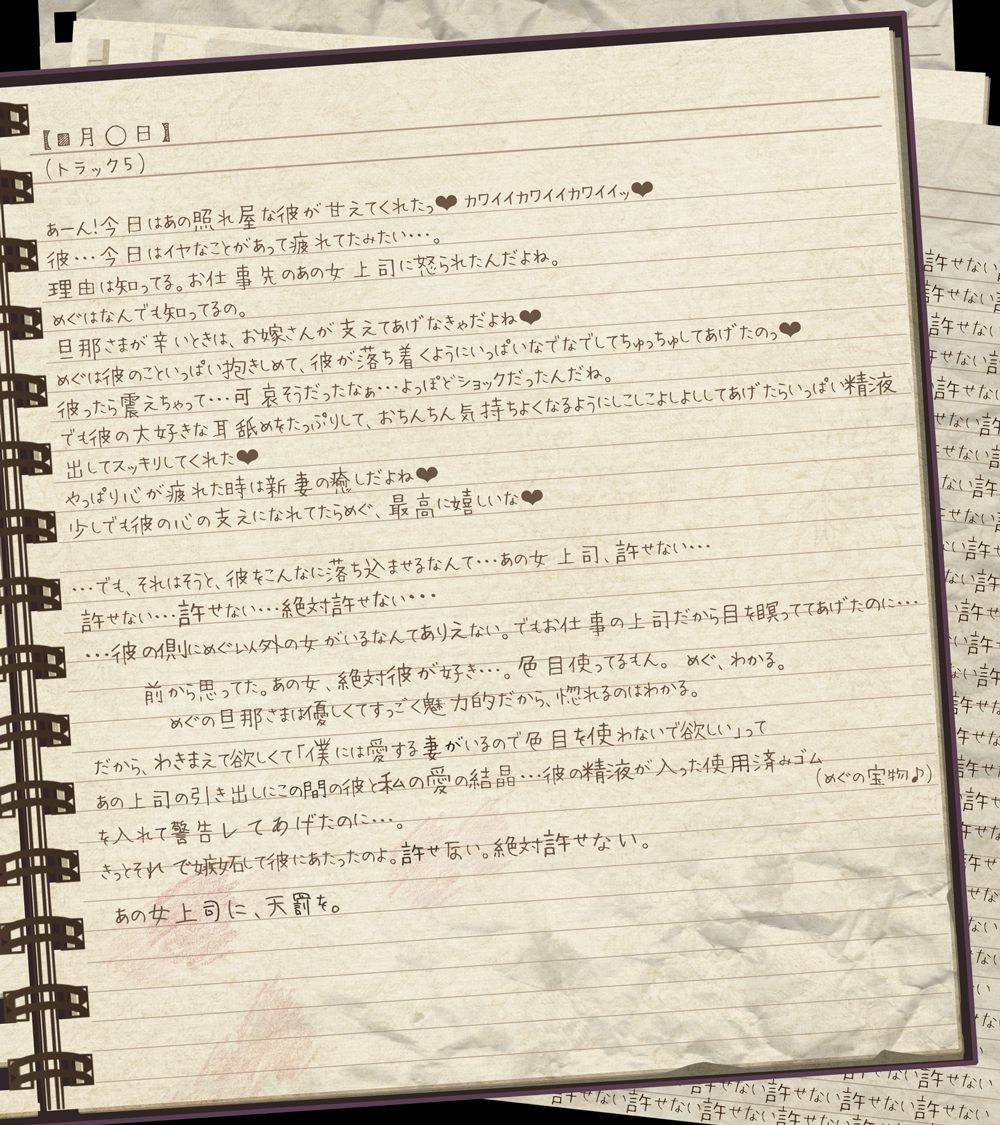 【■月〇日】
(トラック5)
あーん!今日はあの照れ屋な彼が甘えてくれたっ♥カワイイカワイイカワイイッ♥
彼…今日はイヤなことがあって疲れてたみたい…。
理由は知ってる。お仕事先のあの女上司に怒られたんだよね。
めぐはなんでも知ってるの。
旦那さまが辛いときは、お嫁さんが支えてあげなきゃだよね♥
めぐは彼のこといっぱい抱きしめて、彼が落ち着くようにいっぱいなでなでしてちゅっちゅしてあげたのっ♥
彼ったら震えちゃって…可哀そうだったなぁ…よっぽどショックだったんだね。
でも彼の大好きな耳舐めをたっぷりして、おちんちん気持ちよくなるようにしこしこよしよししてあげたらいっぱい精液
出してスッキリしてくれた♥
やっぱり心が疲れた時は新妻の癒しだよね♥
少しでも彼の心の支えになれてたらめぐ、最高に嬉しいな♥
…でも、それはそうと、彼をこんなに落ち込ませるなんて…あの女上司、許せない…
許せない…許せない…絶対許せない…
…彼の側にめぐ以外の女がいるなんてありえない。でもお仕事の上司だから目を瞑っててあげたのに…
前から思ってた。あの女、絶対彼が好き…。色目使ってるもん。めぐ、わかる。
めぐの旦那さまは優しくてすっごく魅力的だから、惚れるのはわかる。
だから、わきまえて欲しくて「僕には愛する妻がいるので色目を使わないで欲しい」って
あの上司の引き出しにこの間の彼と私の愛の結晶…彼の精液が入った使用済みゴム
(めぐの宝物♪)
を入れて警告してあげたのに…。
きっとそれで嫉妬して彼にあたったのよ。許せない。絶対許せない。
あの女上司に、天罰を。
許せない
許せない
許せない
許せない
許せない
許せない許せない許せない許せない許せない
許せない許せない許せない許せない